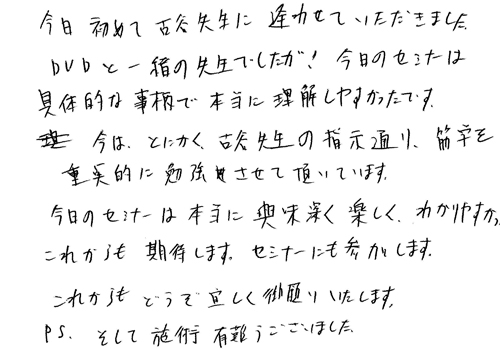 今日 初めて 古谷先生に 逢わせて いただきました
DVDと 一緒の先生でしたが! 今日のセミナーは
具体的な事柄で 本当に 理解しやすかったです。
今は、とにかく、古谷先生の 指示通り、筋字を
重実的に 勉強させて 頂いています。
今日のセミナーは 本当に 興味深く 楽しく、わかりやすかっ
これからも 期待します。セミナーにも参加します。
これからも どうぞ 宜しく 御願いいたします。
P.S. そして 施術 有難うございました。